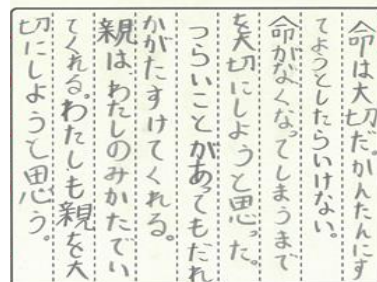 命は大切だ。かんたんにす
てようとしたらいけない。
命がなくなってしまうまで
を大切にしようと思った。
つらいことがあってもだれ
かがたすけてくれる。
親は、わたしのみかたでい
てくれる。わたしも親を大
切にしようと思う。